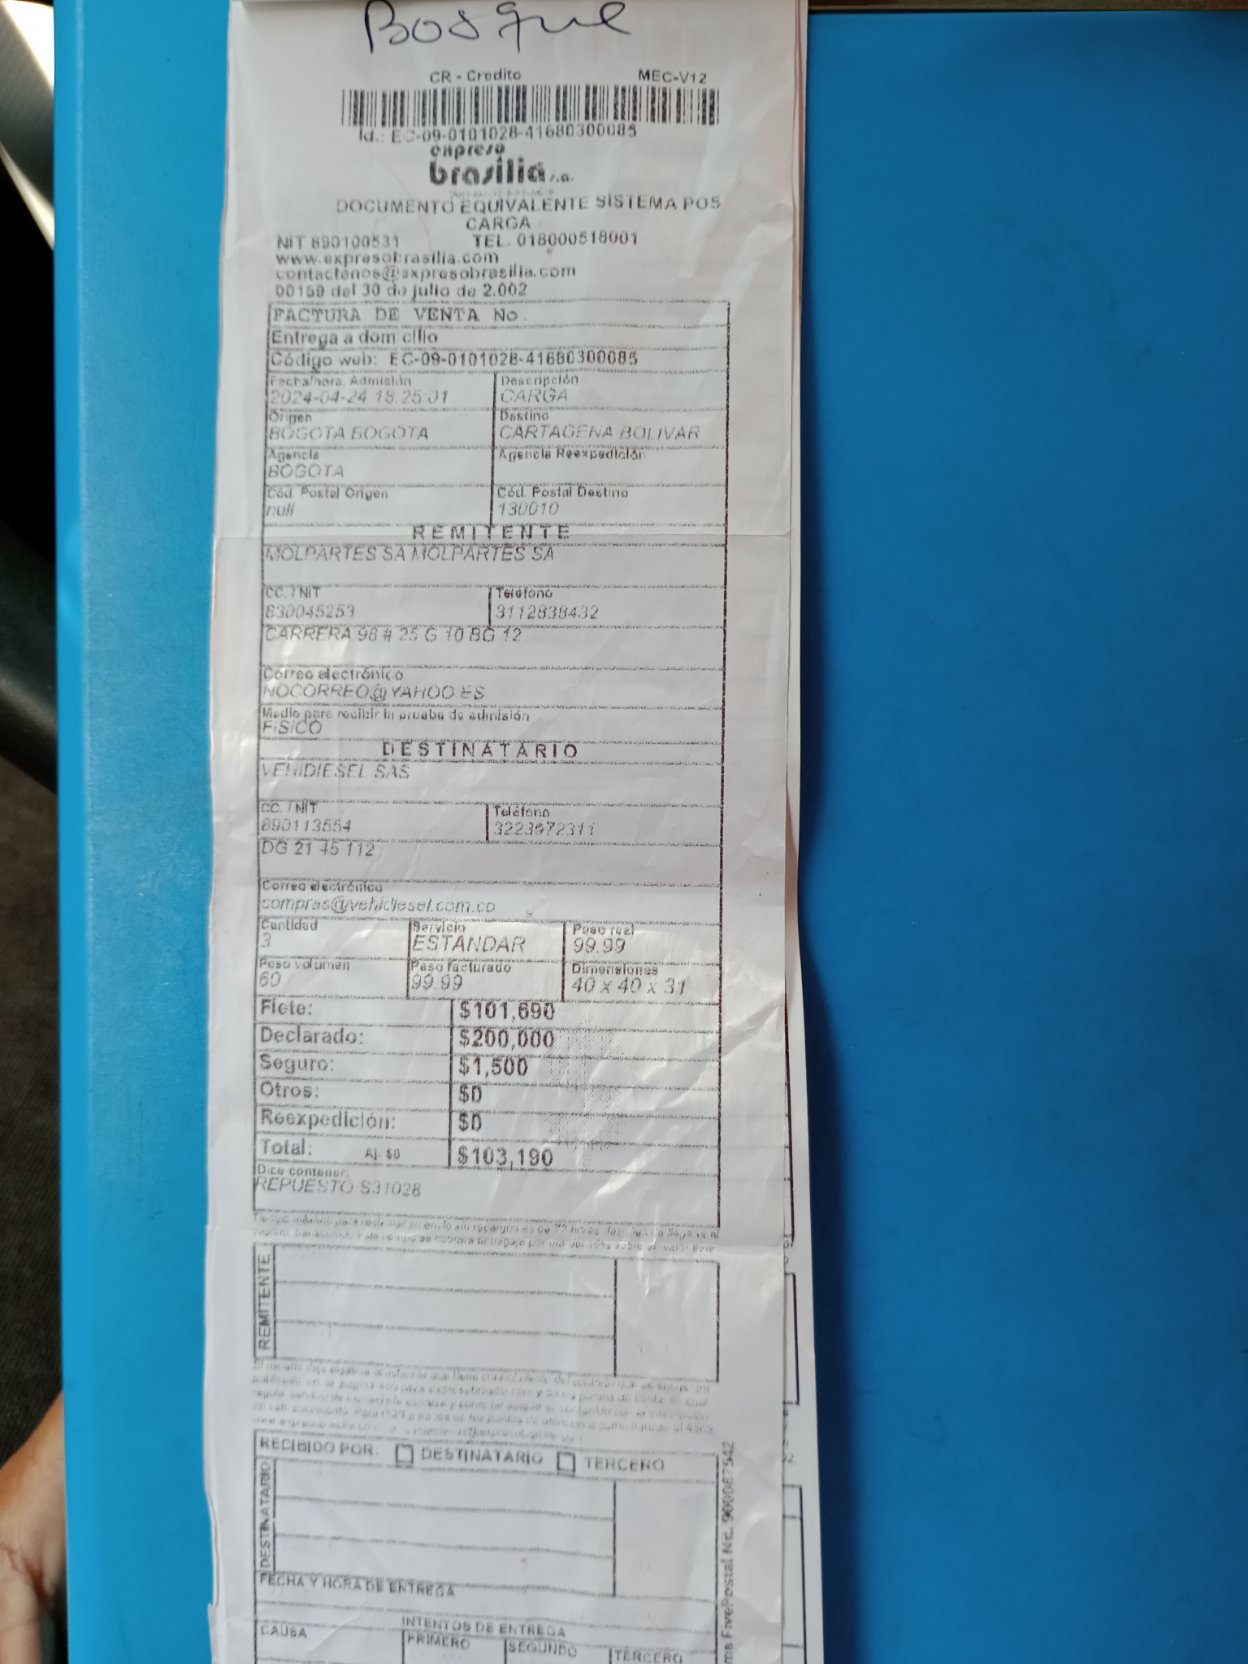 Bosque
CR - Credito MEC-V12
Id.: EC-09-0101028-41680300085
expreso
brasilia s.a.
DOCUMENTO EQUIVALENTE SISTEMA POS
CARGA
NIT 890100531 TEL. 018000518001
www.expresobrasilia.com
contactenos@expresobrasilia.com
00159 del 30 de julio de 2.002
FACTURA DE VENTA No.
Entrega a domicilio
Código web: EC-09-0101028-41680300085
Fecha/hora, Admisión Descripción
2024-04-24 18:25:01 CARGA
Origen Destino
BOGOTA BOGOTA CARTAGENA BOLIVAR
Agencia Agencia Reexpedición
BOGOTA
Cód. Postal Origen Cód. Postal Destino
null 130010
REMITENTE
MOLPARTES SA MOLPARTES SA
CC. / NIT Teléfono
830045253 3112838432
CARRERA 98 # 25 G 10 BG 12
Correo electrónico
NOCORREO@YAHOO.ES
Medio para recibir la prueba de admisión
FISICO
DESTINATARIO
VEHIDIESEL SAS
CC. / NIT Teléfono
890113554 3223672311
DG 21 45 112
Correo electrónico
compras@vehidiesel.com.co
Cantidad Servicio Peso real
3 ESTANDAR 99.99
Peso volumen Peso facturado Dimensiones
60 99.99 40 x 40 x 31
Flete: $101,690
Declarado: $200,000
Seguro: $1,500
Otros: $0
Reexpedición: $0
Total: Aj- $0 $103,190
Dice contener:
REPUESTO S31028
REMITENTE
RECIBIDO POR: DESTINATARIO TERCERO
DESTINATARIO
FECHA Y HORA DE ENTREGA
INTENTOS DE ENTREGA
CAUSA PRIMERO SEGUNDO TERCERO
FivePostal Nit. 900087542